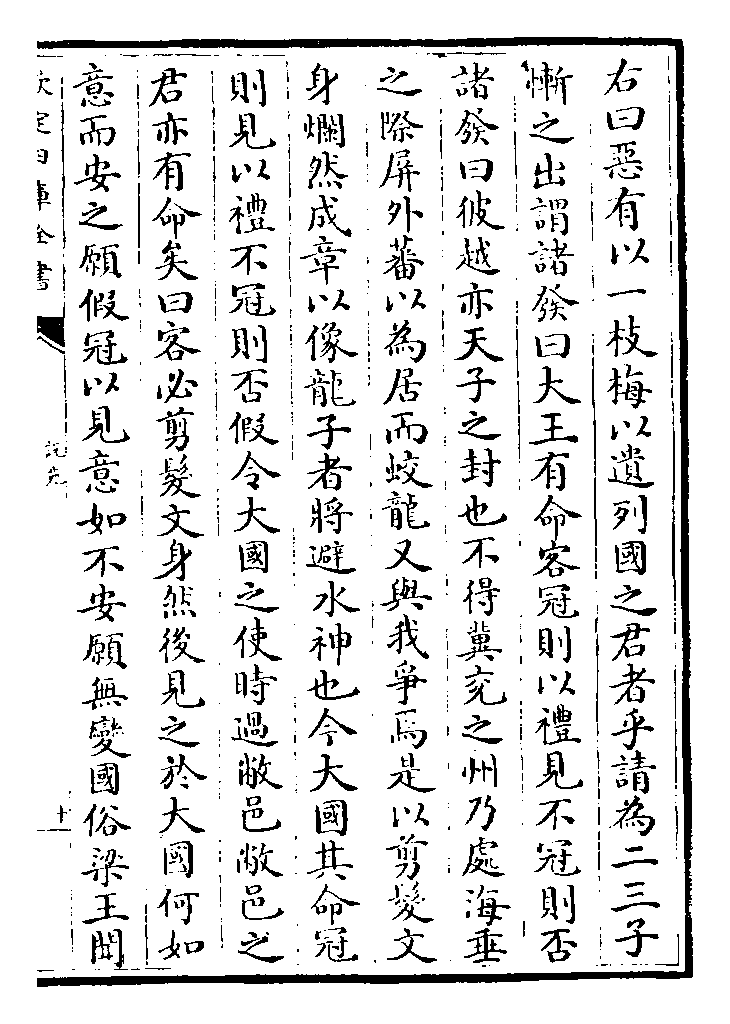 右曰惡有以一枝梅以遺列國之君者乎請為二三子
慚之出謂諸發曰大王有命客冠則以禮見不冠則否
諸發曰彼越亦天子之封也不得冀兖之州乃處海垂
之際屏外蕃以為居而蛟龍又與我爭焉是以剪髮文
身爛然成章以像龍子者將避水神也今大國其命冠
則見以禮不冠則否假令大國之使時過敝邑敝邑之
君亦有命矣曰客必剪髮文身然後見之於大國何如
意而安之願假冠以見意如不安願無變國俗梁王聞
欽定四庫全書
說苑
十